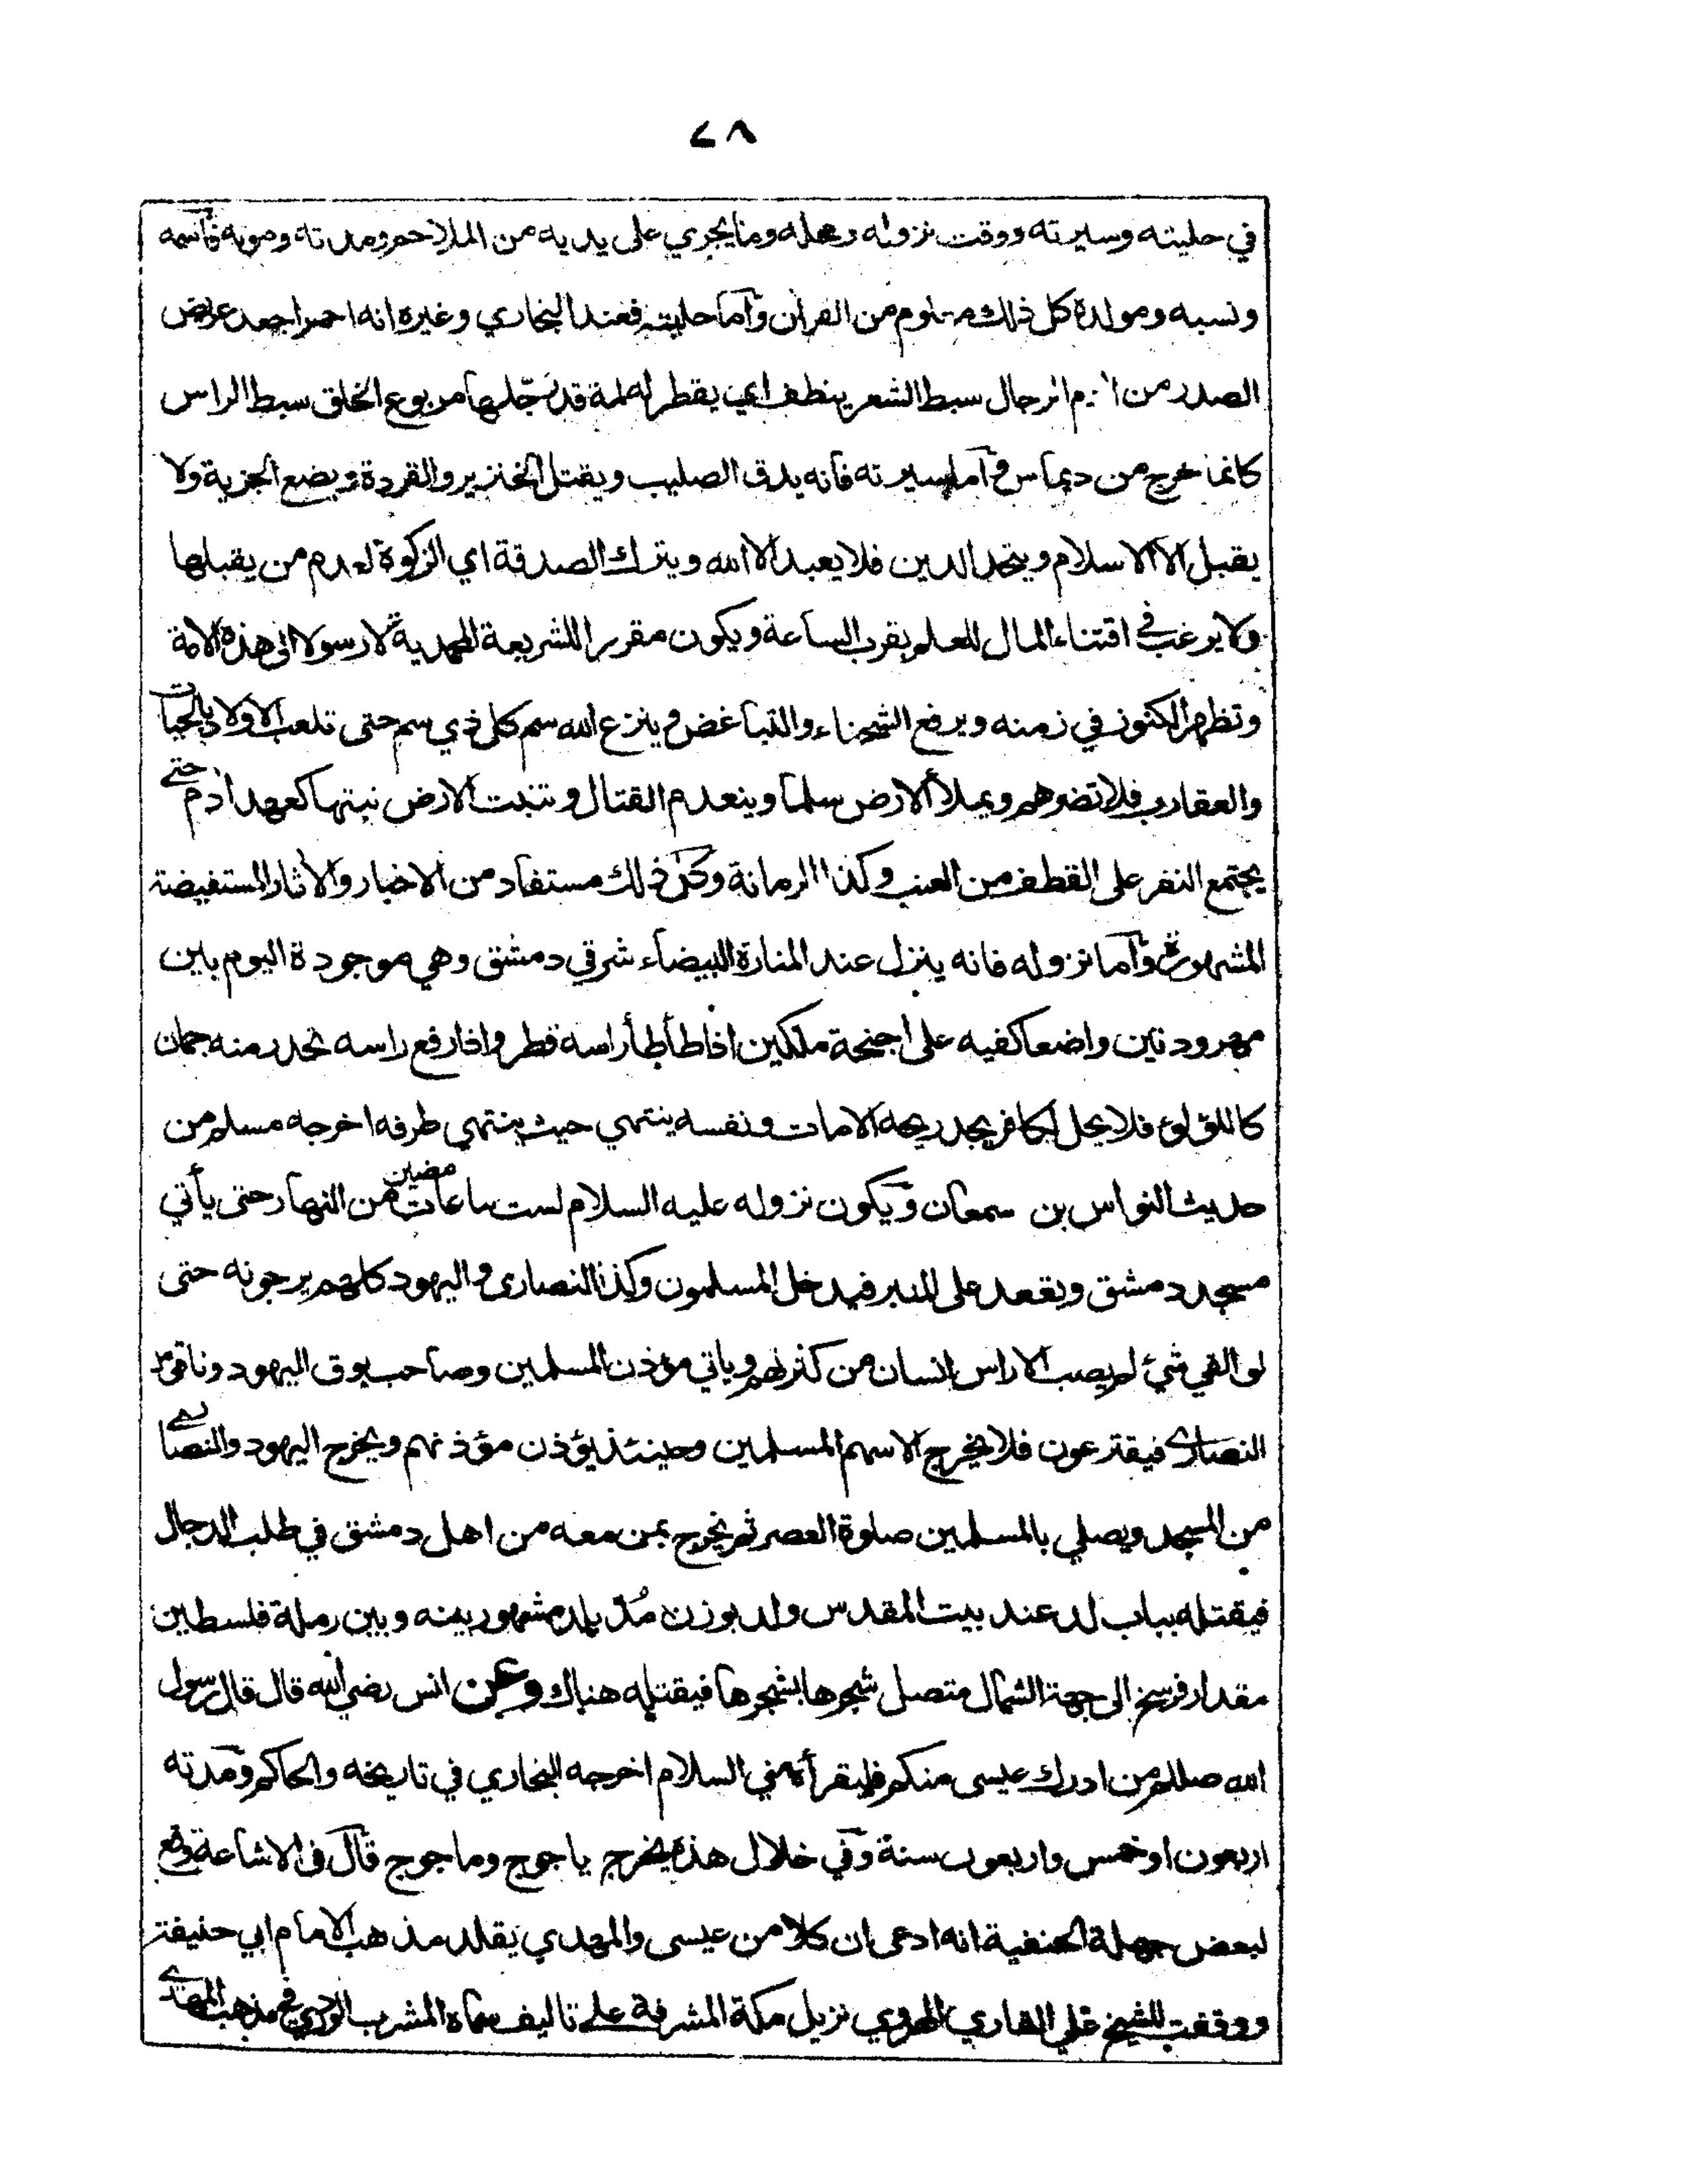 ٧٨
في حليته وسيرته ووقت نزوله ومحله وما يجري على يديه من الملاحم ومدته وموته فاسمه
ونسبه ومولده كل ذلك معلوم من القرآن وأما حليته فعند البخاري وغيره انه احمر جعد عريض
الصدر من الرجال سبط الشعر ينطف اي يقطر له لمة قد رجلها مربوع الخلق سبط الراس
كانما خرج من ديماس وأما سيرته فانه يدق الصليب ويقتل الخنزير والقردة ويضع الجزية ولا
يقبل الا الاسلام ويتحد الدين فلا يعبد الا الله ويترك الصدقة اي الزكوة لعدم من يقبلها
ولا يرغب في اقتناء المال للعلم بقرب الساعة ويكون مقررا للشريعة المحمدية لا رسولا الى هذه الامة
وتظهر الكنوز في زمنه ويرفع الشحناء والتباغض وينزع الله سم كل ذي سم حتى تلعب الاولاد بالحيات
والعقارب فلا تضرهم ويملأ الارض سلما وينعدم القتال وتنبت الارض نبتها كعهد آدم حتى
يجتمع النفر على القطف من العنب وكذا الرمانة وكل ذلك مستفاد من الاخبار والاثار المستفيضة
المشهورة وأما نزوله فانه ينزل عند المنارة البيضاء شرقي دمشق وهي موجودة اليوم بين
مهرودتين واضعا كفيه على اجنحة ملكين اذا طأطأ راسه قطر واذا رفع راسه تحدر منه جمان
كاللؤلوء فلا يحل لكافر يجد ريحه الا مات ونفسه ينتهي حيث ينتهي طرفه اخرجه مسلم من
حديث النواس بن سمعان ويكون نزوله عليه السلام لست ساعات مضين من النهار حتى يأتي
مسجد دمشق ويقعد على المنبر فيدخل المسلمون وكذا النصارى واليهود كلهم يرجونه حتى
لو القي شئ لم يصب الا راس انسان من كثرتهم وياتي مؤذن المسلمين وصاحب بوق اليهود وناقوس
النصارى فيقترعون فلا يخرج الا سهم المسلمين وحينئذ يؤذن مؤذنهم ويخرج اليهود والنصارى
من المسجد ويصلي بالمسلمين صلوة العصر ثم يخرج بمن معه من اهل دمشق في طلب الدجال
فيقتله بباب لد عند بيت المقدس ولد بوزن مُدّ بلد مشهور بينه وبين رملة فلسطين
مقدار فرسخ الى جهة الشمال متصل شجرها بشجرها فيقتله هناك وعن انس رضي الله قال قال رسول
الله صللم من ادرك عيسى منكم فليقرأه مني السلام اخرجه البخاري في تاريخه والحاكم ومدته
اربعون او خمس واربعون سنة وفي خلال هذه يخرج ياجوج وماجوج قال في الاشاعة وقع
لبعض جهلة الحنفية انه ادعى ان كلا من عيسى والمهدي يقلد مذهب الامام ابي حنيفة
ووقفت للشيخ علي القاري الهروي نزيل مكة المشرفة على تاليف سماه المشرب الوردي في مذهب المهدي